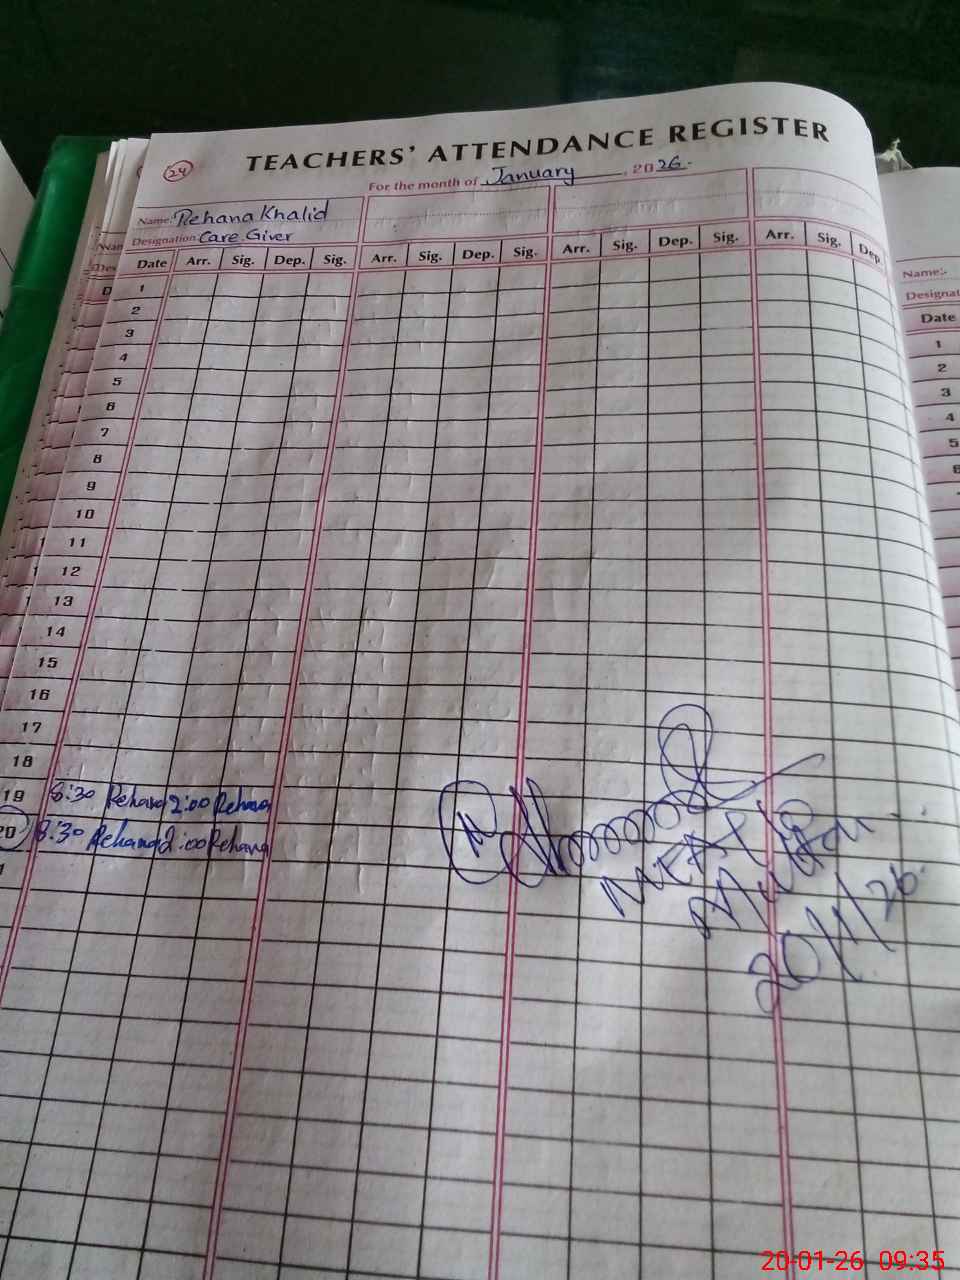 24
TEACHERS' ATTENDANCE REGISTER
For the month of January, 2026.
Name: Rehana Khalid
Designation Care Giver
Date Arr. Sig. Dep. Sig. Arr. Sig. Dep. Sig. Arr. Sig. Dep. Sig. Arr. Sig. Dep.
1
2
3
4
5
6
7
8
9
10
11
12
13
14
15
16
17
18
19 8:30 Rehana 2:00 Rehana
20 8:30 Rehana 2:00 Rehana
20/1/26.
Name:-
Designat
Date
1
2
3
4
5
6
20-01-26 09:35